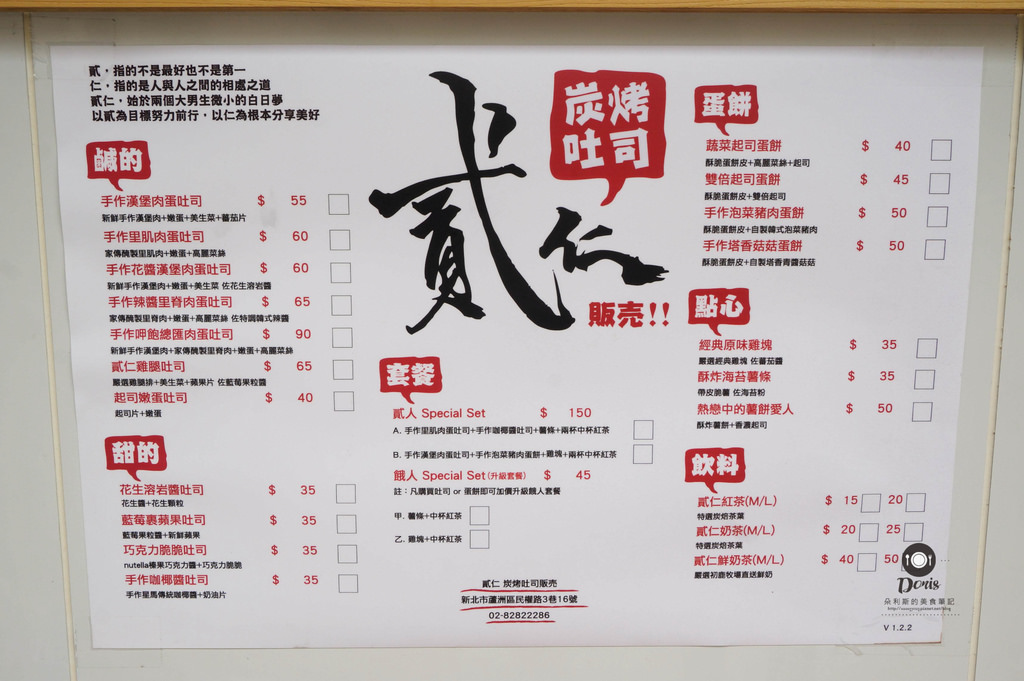 貳，指的不是最好也不是第一
仁，指的是人與人之間的相處之道
貳仁，始於兩個大男生微小的白日夢
以貳為目標努力前行，以仁為根本分享美好
鹹的
手作漢堡肉蛋吐司 $ 55
新鮮手作漢堡肉+嫩蛋+美生菜+蕃茄片
手作里肌肉蛋吐司 $ 60
家傳醃製里肌肉+嫩蛋+高麗菜絲
手作花醬漢堡肉蛋吐司 $ 60
新鮮手作漢堡肉+嫩蛋+美生菜 佐花生溶岩醬
手作辣醬里脊肉蛋吐司 $ 65
家傳醃製里脊肉+嫩蛋+高麗菜絲 佐特調韓式辣醬
手作呷飽總匯肉蛋吐司 $ 90
新鮮手作漢肉+家傳醃製里脊肉+嫩蛋+高麗菜絲
貳仁雞腿吐司 $ 65
嚴選雞腿排+美生菜+蘋果片 佐藍莓果粒醬
起司嫩蛋吐司 $ 40
起司片+嫩蛋
甜的
花生溶岩醬吐司 $ 35
花生醬+花生顆粒
藍莓裹蘋果吐司 $ 35
藍莓果粒醬+新鮮蘋果
巧克力脆脆吐司 $ 35
nutella榛果巧克力醬+巧克力脆脆
手作咖椰醬吐司 $ 35
手作星馬傳統咖椰醬+奶油片
炭烤
吐司
貳仁
販売!!
套餐
貳人 Special Set $ 150
A. 手作里肌肉蛋吐司+手作咖椰醬吐司+薯條+兩杯中杯紅茶
B. 手作漢堡肉蛋吐司+手作泡菜豬肉蛋餅+雞塊+兩杯中杯紅茶
餓人 Special Set(升級套餐) $ 45
註：凡購買吐司 or 蛋餅即可加價升級餓人套餐
甲. 薯條+中杯紅茶
乙. 雞塊+中杯紅茶
貳仁 炭烤吐司販売
新北市蘆洲區民權路3巷16號
02-82822286
蛋餅
蔬菜起司蛋餅 $ 40
酥脆蛋餅皮+高麗菜絲+起司
雙倍起司蛋餅 $ 45
酥脆蛋餅皮+雙倍起司
手作泡菜豬肉蛋餅 $ 50
酥脆蛋餅皮+自製韓式泡菜豬肉
手作塔香菇菇蛋餅 $ 50
酥脆蛋餅皮+自製塔香青醬菇菇
點心
經典原味雞塊 $ 35
嚴選經典雞塊 佐蕃茄醬
酥炸海苔薯條 $ 35
帶皮脆薯 佐海苔粉
熱戀中的薯餅愛人 $ 50
酥炸薯餅+香濃起司
飲料
貳仁紅茶(M/L) $ 15 20
特選炭焙茶葉
貳仁奶茶(M/L) $ 20 25
特選炭焙茶葉
貳仁鮮奶茶(M/L) $ 40 50
嚴選初鹿牧場直送鮮奶
Doris
朵利斯的美食筆記
V 1.2.2